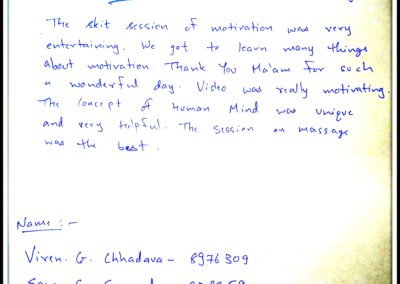 The skit session of motivation was very
entertaining. We got to learn many things
about motivation Thank You Ma'am for such
a wonderful day. Video was really motivating.
The Concept of Human Mind was unique
and very helpful. The Session on massage
was the best.
Name :-
Viren. G. Chhadava - 8976309